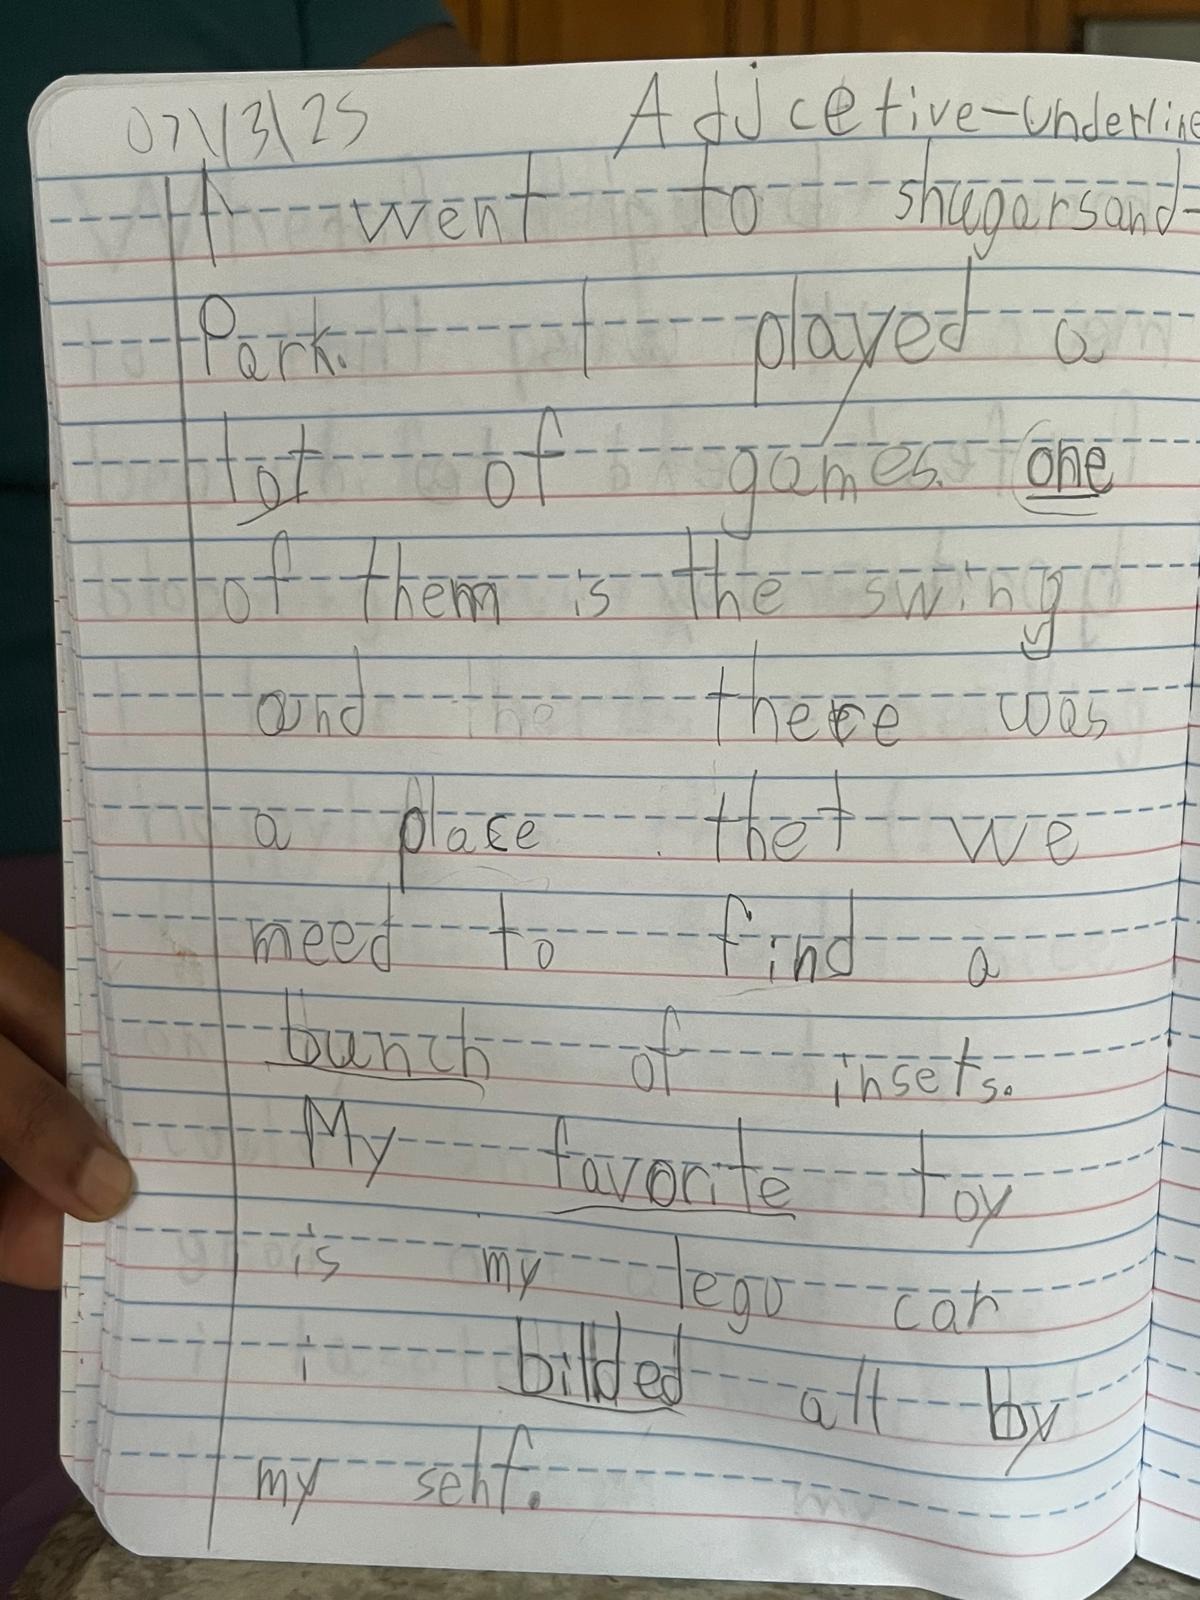 07\13\25 Adjcetive-underline
I went to shugarsand-
Park. I played a
lot of games. one
of them is the swing
and the there was
a place thet we
need to find a
bunch of insets.
My favorite toy
is my lego car
i bilded all by
my sehf.